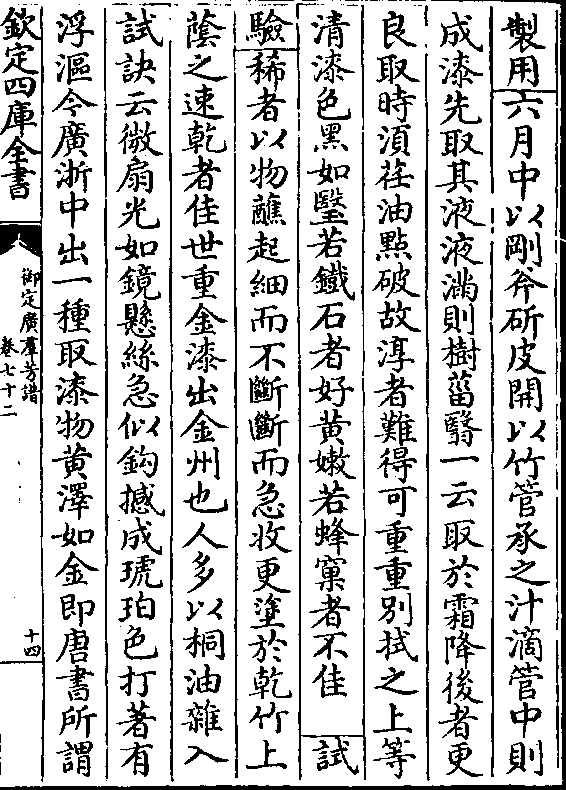 製用六月中以剛斧斫皮開以竹管承之汁滴管中則
成漆先取其液液滿則樹菑翳一云取於霜降後者更
良取時須荏油點破故淳者難得可重重別拭之上等
清漆色黑如瑿若鐵石者好黄嫩若蜂窠者不佳　試
驗稀者以物蘸起細而不斷斷而急收更塗於乾竹上
蔭之速乾者佳世重金漆出金州也人多以桐油雜入
試訣云微扇光如鏡懸絲急似鈎撼成琥珀色打著有
浮漚今廣浙中出一種取漆物黄澤如金即唐書所謂
欽定四庫全書
御定廣羣芳譜
卷七十二
十四